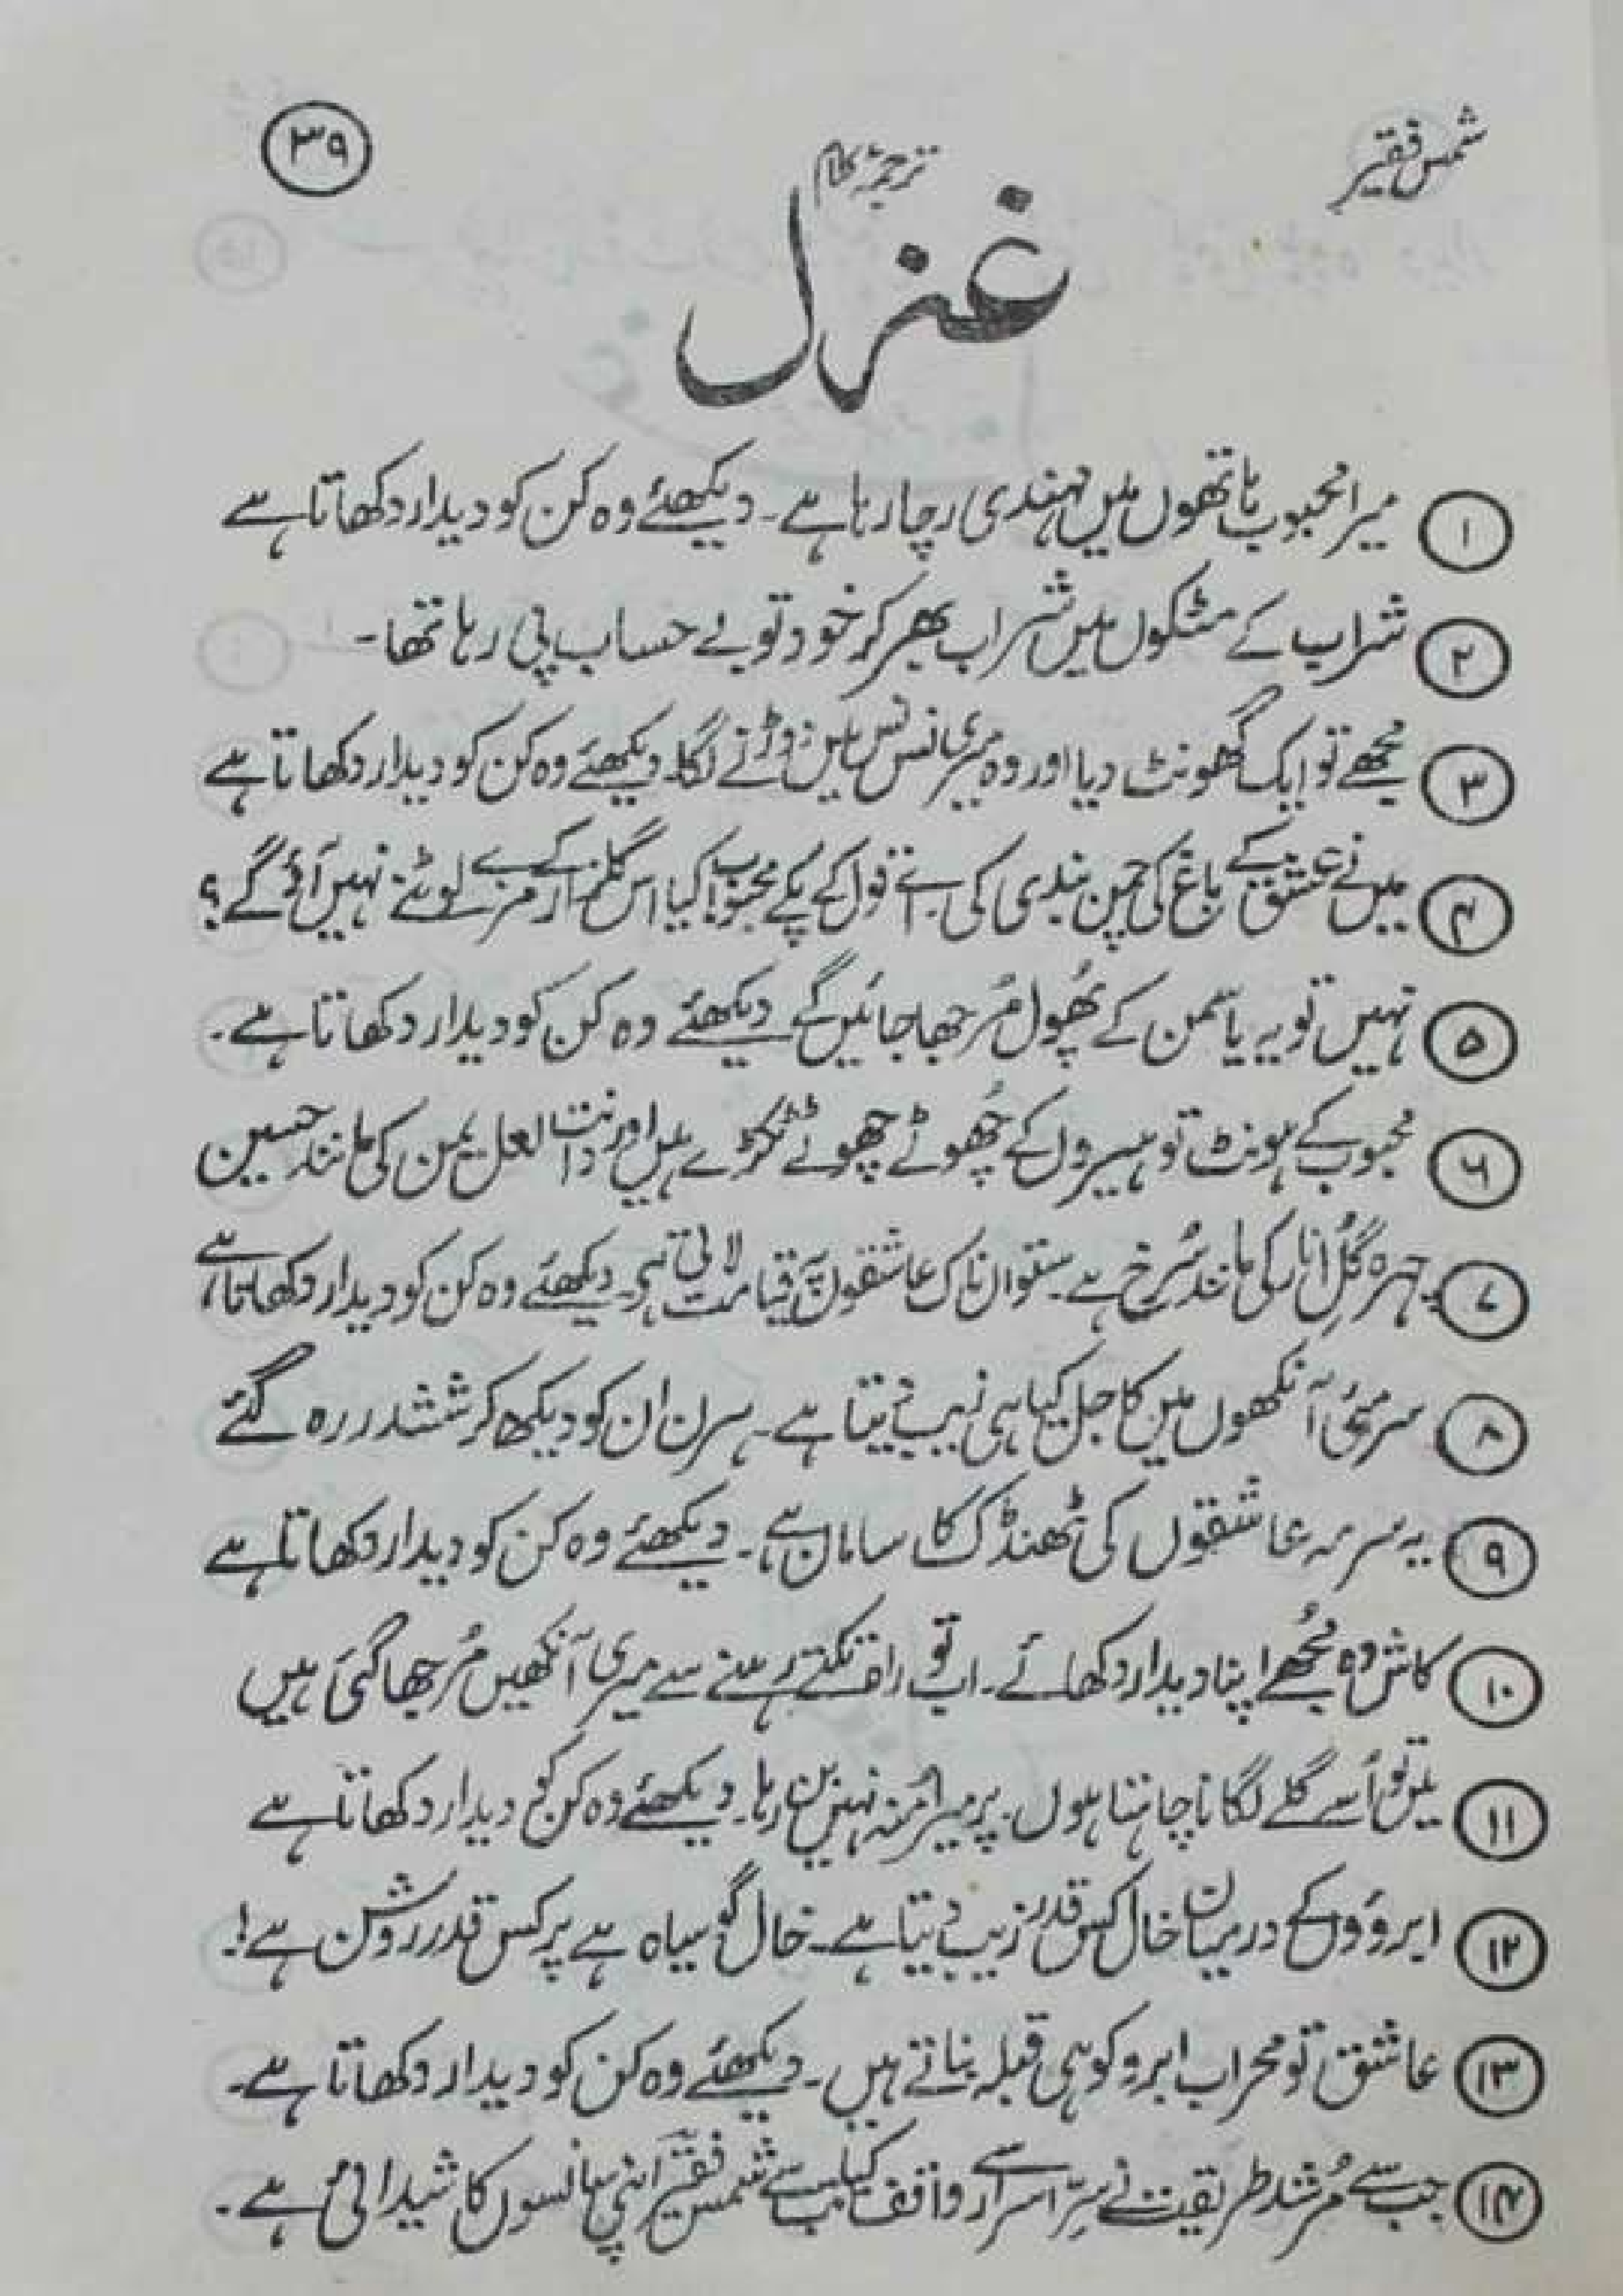 شمس فقیر
۳۹
ترجمۂ کلام
غزل
۱ میرا محبوب ہاتھوں میں مہندی رچا رہا ہے۔ دیکھئے وہ کن کو دیدار دکھاتا ہے
۲ شراب کے مٹکوں میں شراب بھر کر خود تو بے حساب پی رہا تھا۔
۳ مجھے تو ایک گھونٹ دیا اور وہ میری نس نس میں دوڑنے لگا۔ دیکھئے وہ کن کو دیدار دکھاتا ہے
۴ میں نے عشق کے باغ کی چمن بندی کی ہے اے قول کے پکے محبوب! کیا اس گلزار کے مزے لوٹنے نہیں آؤ گے؟
۵ نہیں تو یہ یاسمن کے پھول مُرجھا جائیں گے دیکھئے وہ کن کو دیدار دکھاتا ہے۔
۶ محبوب کے ہونٹ تو ہیروں کے چھوٹے چھوٹے ٹکڑے ہیں اور دانت لعل یمن کی مانند حسین
۷ چہرہ گُلِ انار کی مانند سُرخ ہے۔ ستواں ناک عاشقوں پہ قیامت لاتی ہے۔ دیکھئے وہ کن کو دیدار دکھاتا ہے
۸ سرمئی آنکھوں میں کاجل کیا ہی زیب دیتا ہے۔ ہرن ان کو دیکھ کر ششدر رہ گئے
۹ یہ سرمہ عاشقوں کی ٹھنڈک کا سامان ہے۔ دیکھئے وہ کن کو دیدار دکھاتا ہے
۱۰ کاش وہ مُجھے اپنا دیدار دکھائے۔ اب تو راہ تکتے رہنے سے میری آنکھیں مُرجھا گئی ہیں
۱۱ میں تو اُسے گلے لگانا چاہتا ہوں۔ پر میرا مُنہ نہیں بن رہا۔ دیکھئے وہ کن کو دیدار دکھاتا ہے
۱۲ ابروؤں کے درمیان خال کس قدر زیب دیتا ہے۔ خال گو سیاہ ہے پر کس قدر روشن ہے!
۱۳ عاشق تو محراب ابرو کو ہی قبلہ بناتے ہیں۔ دیکھئے وہ کن کو دیدار دکھاتا ہے۔
۱۴ جب سے مُرشد طریقت نے سِرِّ اسرار سے واقف کیا تب سے شمس فقیر اپنی سانسوں کا شیدائی ہے۔